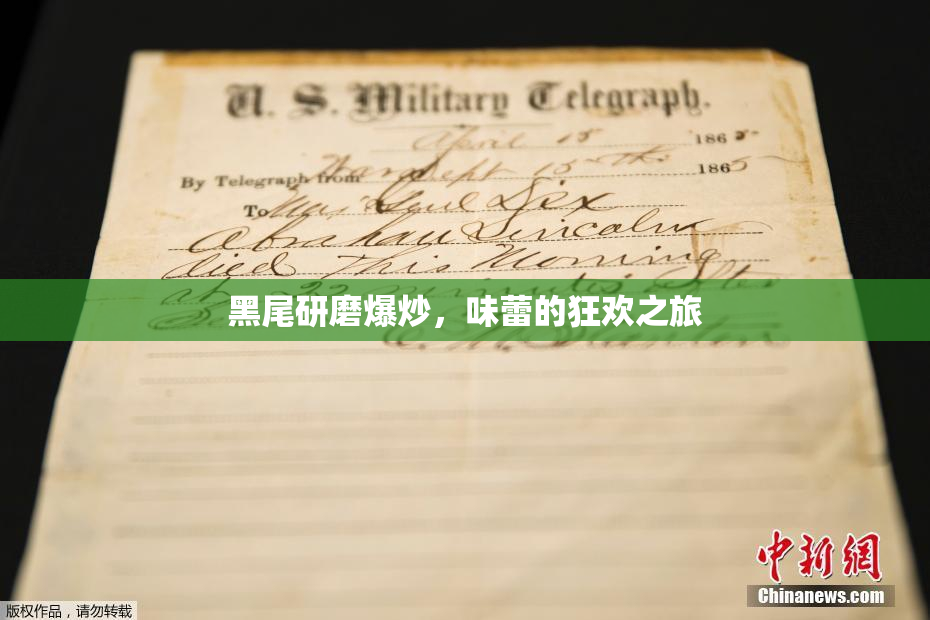 U. S. Military Telegraph.
April 15 1865
By Telegraph from War Dept 15th 1865
To Maj Genl Dix
Abraham Lincoln
died This Morning
at 22 minutes after
黑尾研磨爆炒，味蕾的狂欢之旅
中新网
Chinanews.com
版权作品，请勿转载